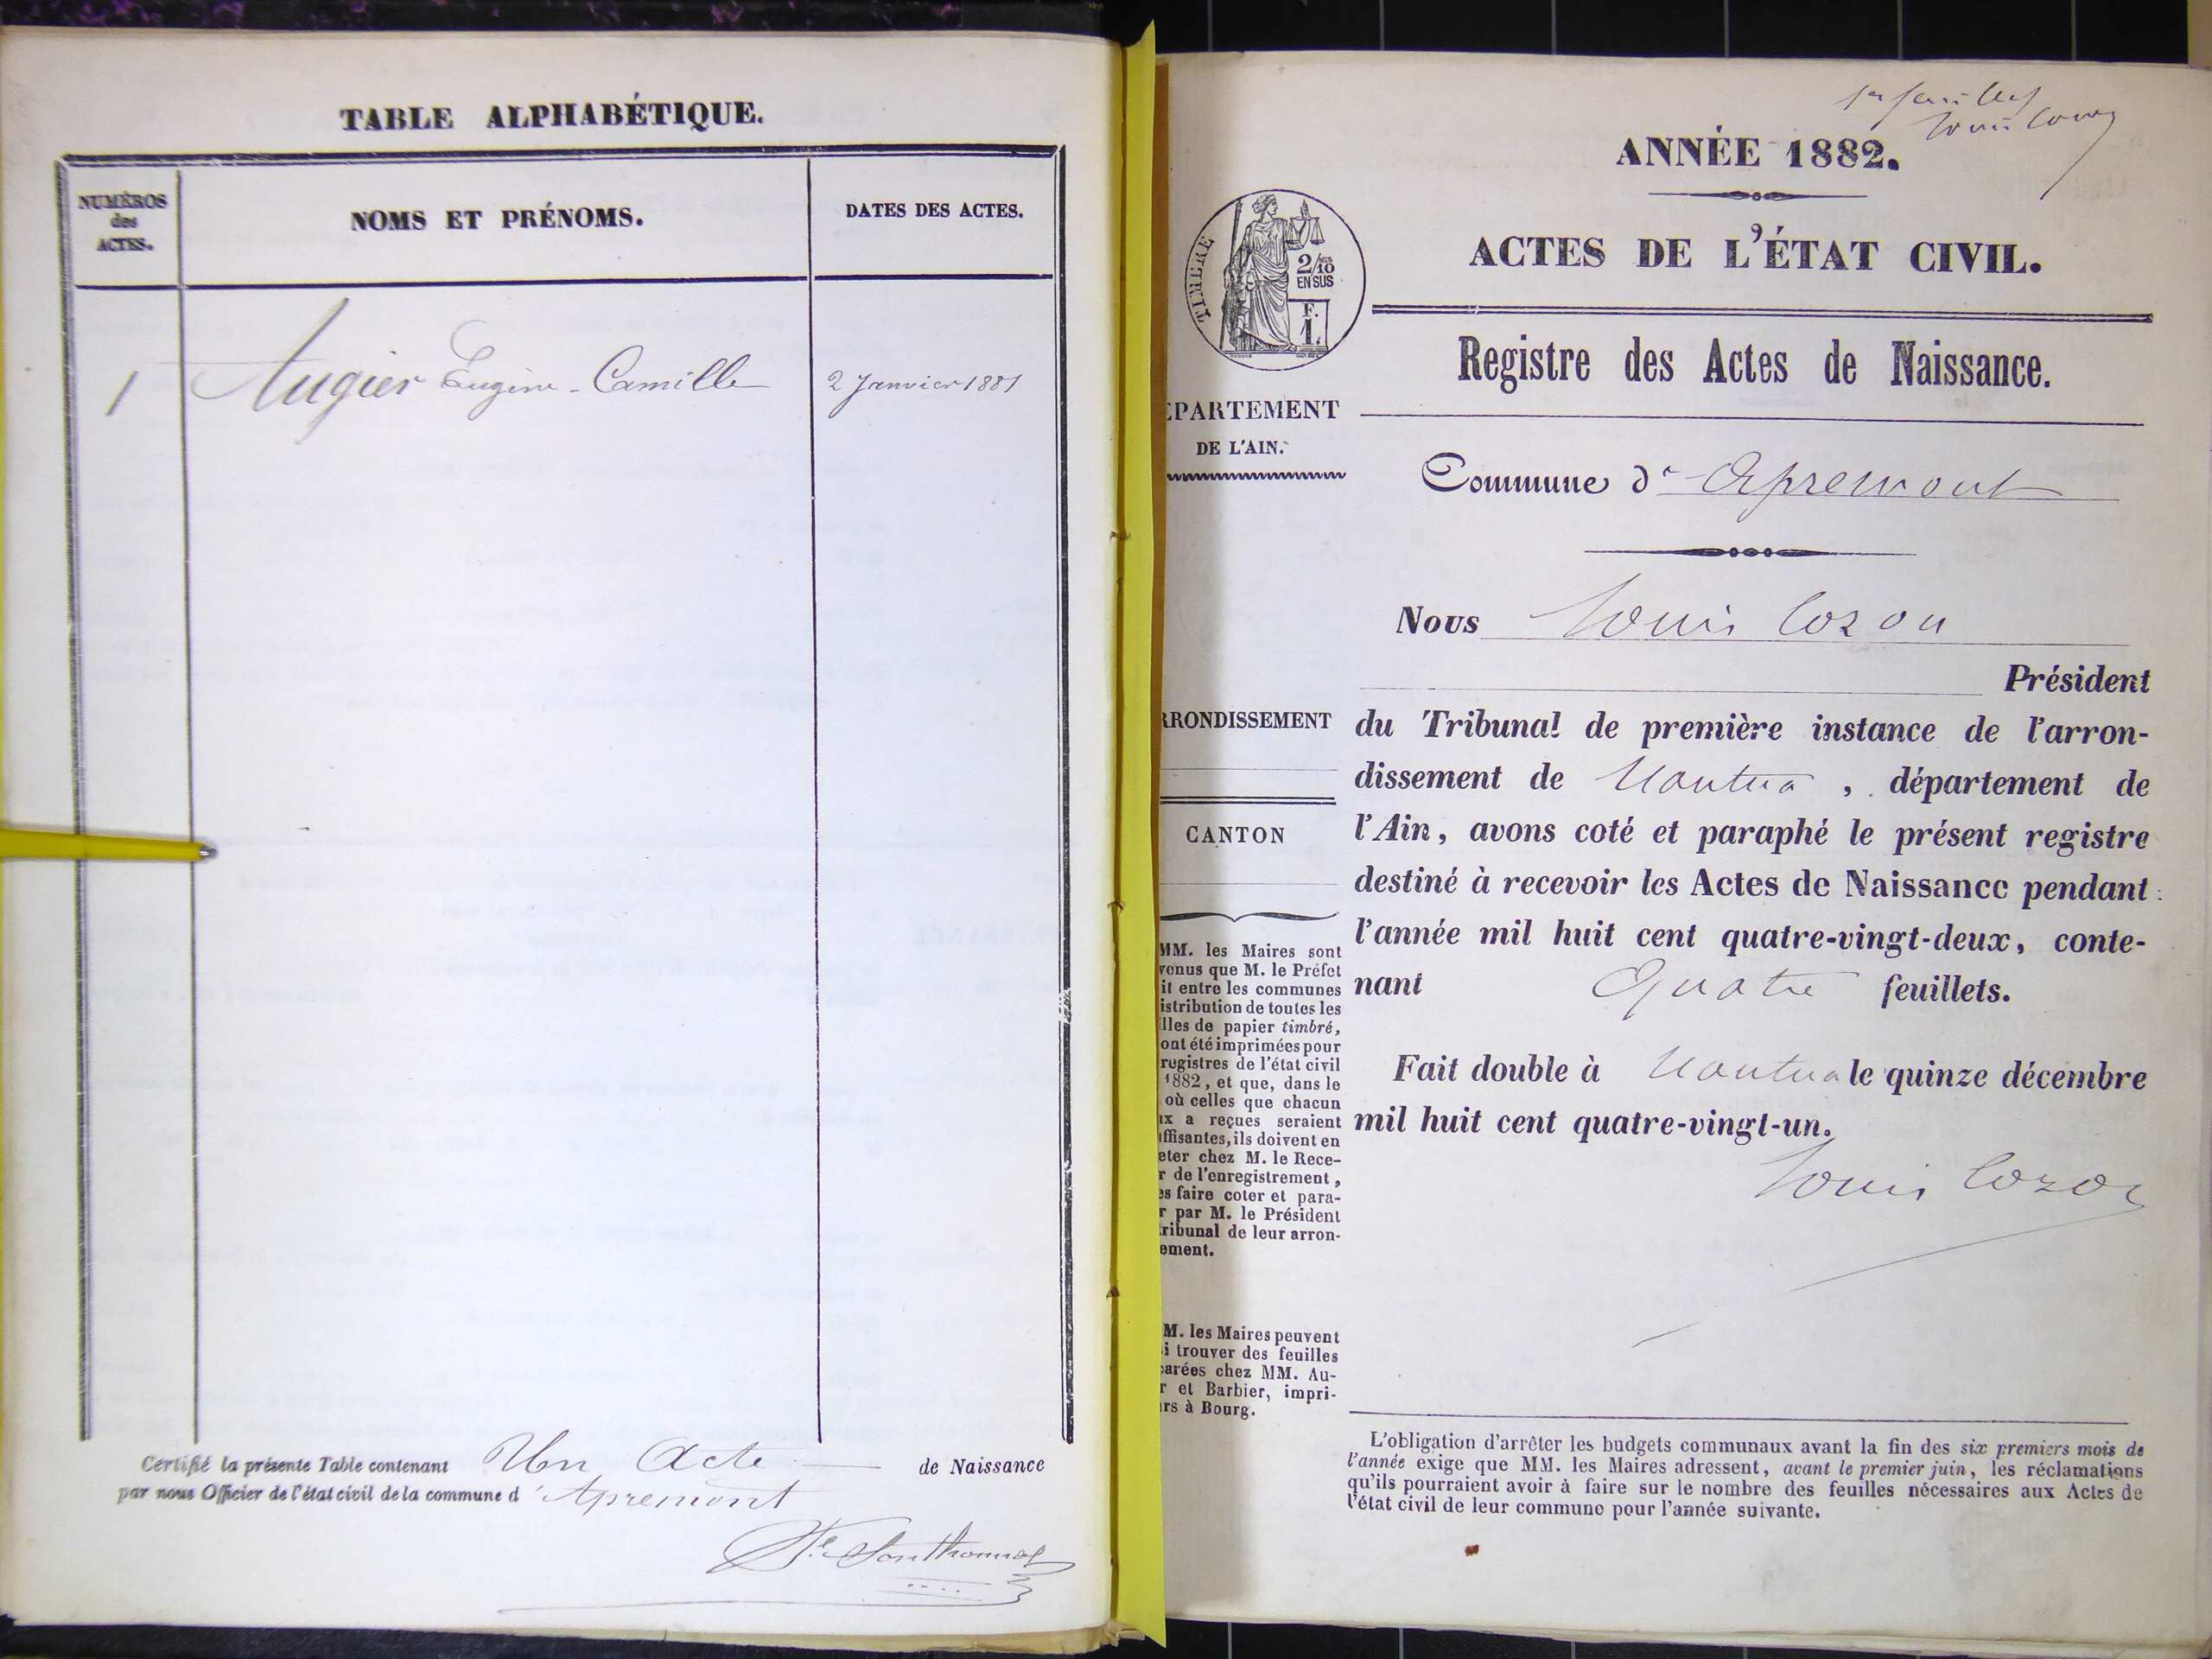 TABLE ALPHABÉTIQUE.
NUMÉROS
des
ACTES.
NOMS ET PRÉNOMS.
DATES DES ACTES.
1 Augier Eugène-Camille 2 Janvier 1881
Certifié la présente Table contenant Un Acte de Naissance
par nous Officier de l'état civil de la commune d'Apremont
1er feuillet
Louis Cozon
ANNÉE 1882.
ACTES DE L'ÉTAT CIVIL.
TIMBRE
2/10
EN SUS
F.
1.
Registre des Actes de Naissance.
ÉPARTEMENT
DE L'AIN.
Commune d'Apremont
Nous Louis Cozon
Président
du Tribunal de première instance de l'arron-
dissement de Nantua, département de
l'Ain, avons coté et paraphé le présent registre
destiné à recevoir les Actes de Naissance pendant
l'année mil huit cent quatre-vingt-deux, conte-
nant Quatre feuillets.
Fait double à Nantua le quinze décembre
mil huit cent quatre-vingt-un.
Louis Cozon
RRONDISSEMENT
CANTON
MM. les Maires sont
venus que M. le Préfet
it entre les communes
istribution de toutes les
lles de papier timbré,
ont été imprimées pour
registres de l'état civil
1882, et que, dans le
où celles que chacun
ux a reçues seraient
ffisantes, ils doivent en
eter chez M. le Rece-
r de l'enregistrement,
es faire coter et para-
r par M. le Président
tribunal de leur arron-
ement.
M. les Maires peuvent
i trouver des feuilles
parées chez MM. Au-
r et Barbier, impri-
rs à Bourg.
L'obligation d'arrêter les budgets communaux avant la fin des six premiers mois de
l'année exige que MM. les Maires adressent, avant le premier juin, les réclamations
qu'ils pourraient avoir à faire sur le nombre des feuilles nécessaires aux Actes de
l'état civil de leur commune pour l'année suivante.